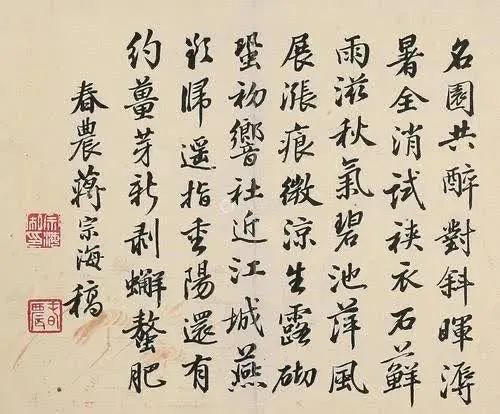 名園共醉對斜暉溽
暑全消試裌衣石蘚
雨滋秋氣碧池萍風
展漲痕微涼生露砌
蛩初響社近江城燕
欲歸遙指重陽還有
約薑芽新剥蠏螯肥
春農蔣宗海稿